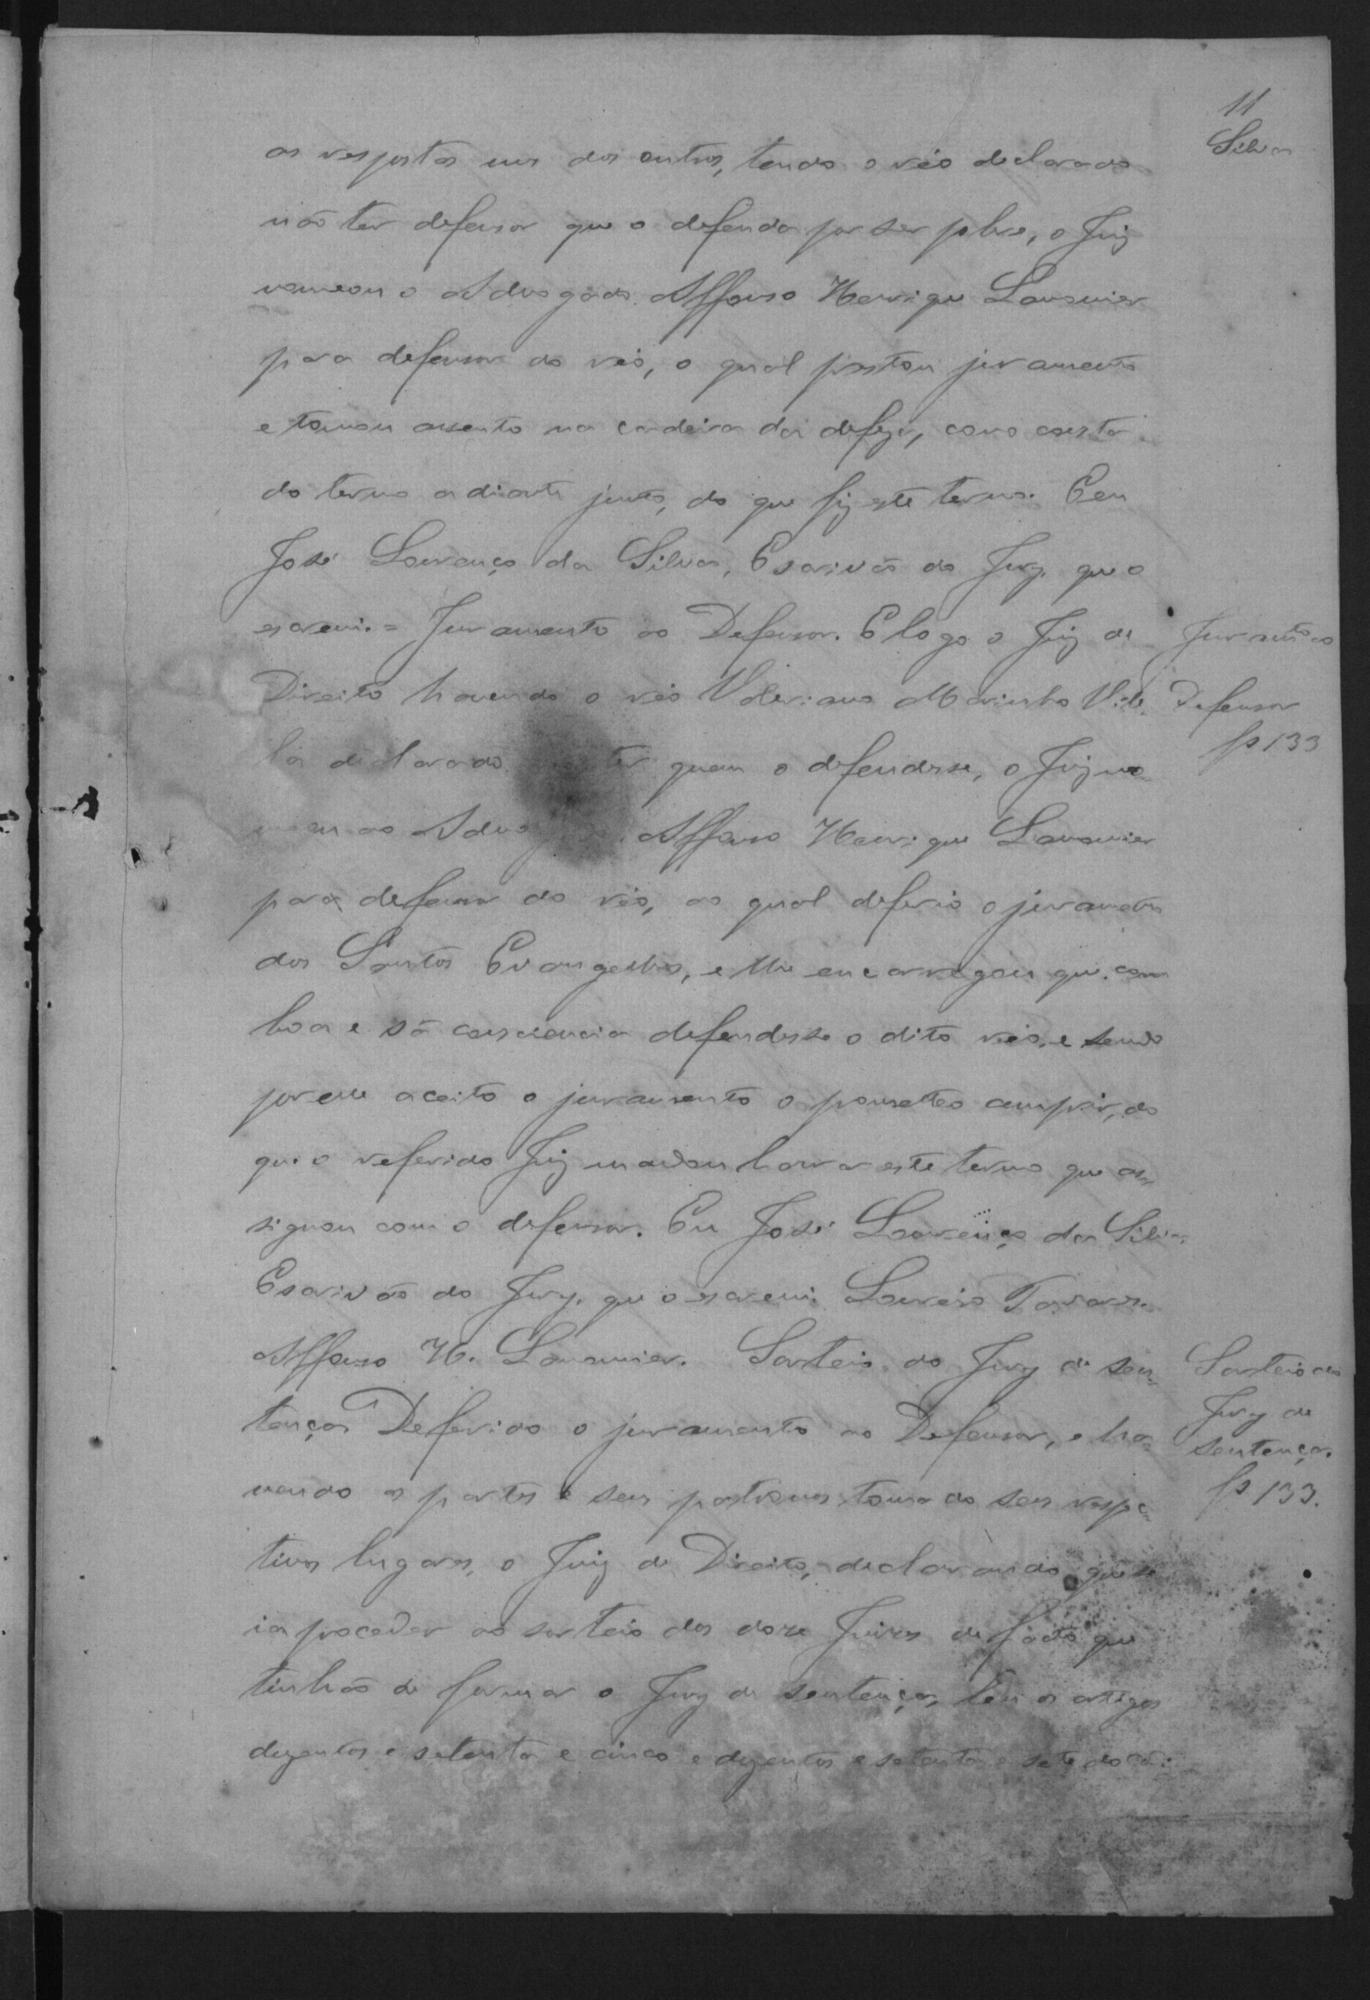 11
Silva
as respostas uns dos outros, tendo o réo declarado
não ter defensor que o defenda por ser pobre, o Juiz
nomeou o Advogado Affonso Henrique
para defensor do réo, o qual prestou juramento
e tomou assento na cadeira da defeza, como consta
do termo adiante junto, do que fiz este termo. Eu
José Lourenço da Silva, Escrivão do Jury que o
escrevi. = Juramento ao Defensor. E logo o Juiz de
Juramto ao
Direito havendo o réo Valeriano Marinho Vil
Defensor
la declarado ter quem o defendesse, o Juiz no
fs 133
meou ao Affonso Henrique
para defensor do réo, ao qual deferio o juramento
dos Santos Evangelhos, e lhe encarregou que com
boa e sã consciencia defendesse o dito réo, e sendo
por elle aceito o juramento o prometteo cumprir, do
que o referido Juiz mandou lavrar este termo que as
signou com o defensor. Eu José Lourenço da Silva
Escrivão do Jury, que o escrevi. Loureiro Tavares.
Affonso H. Sorteio do Jury de sen-
Sorteio do
tença Deferido o juramento ao Defensor, e ha-
Jury de
sentença.
vendo as partes e seus tomado seus respec
fs 133.
tivos lugares, o Juiz de Direito, declarando que se
ia proceder ao sorteio dos doze Juizes de facto que
tinhão de formar o Jury de sentença, leu os artigos
dezentos e setenta e cinco e dezentos e setenta e sete do Co